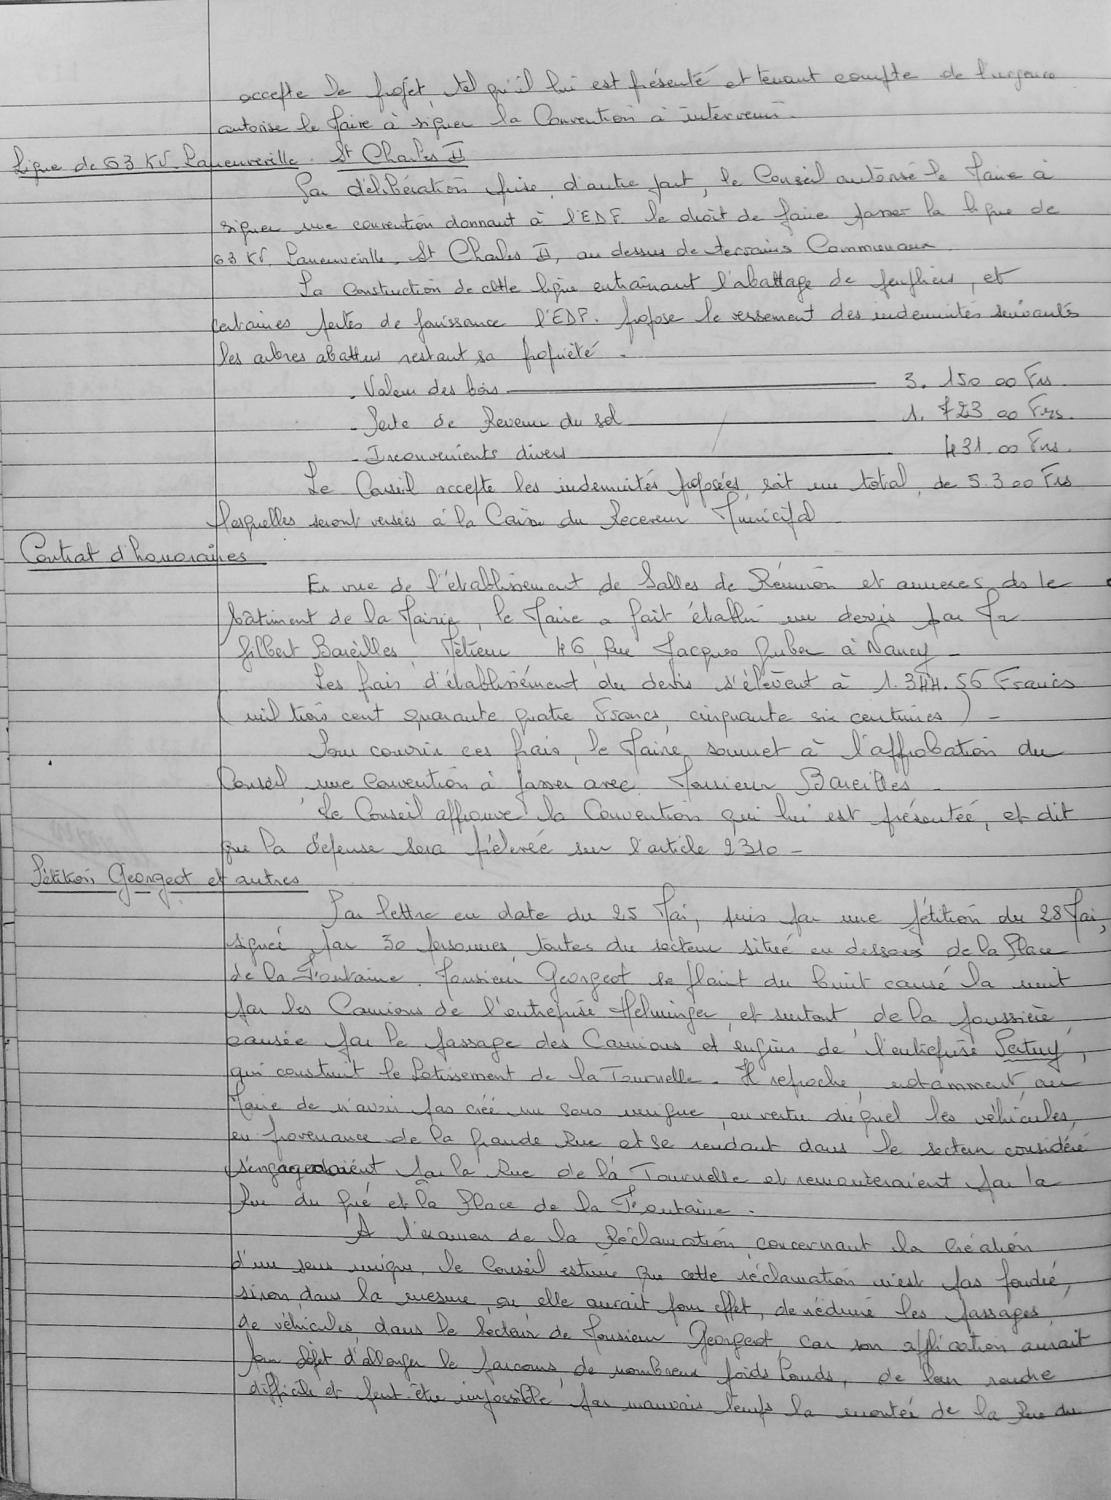 accepte le projet, tel qu'il lui est présenté et tenant compte de l'urgence
autorise le Maire à signer la Convention à intervenir.
Ligne de 63 KV. Laneuveville. St Charles II
Par délibération prise, d'autre part, le Conseil autorise le Maire à
signer une convention donnant à l'EDF le droit de faire passer la ligne de
63 KV. Laneuveville. St Charles II, au dessus de terrains Communaux.
La construction de cette ligne entraînant l'abattage de peupliers, et
certaines pertes de jouissance l'EDF. propose le versement des indemnités suivantes
les arbres abattus restant sa propriété.
. Valeur des bois 3. 150 00 Frs.
- Perte de Revenu du sol 1. 723 00 Frs.
- Inconvénients divers 431.00 Frs.
Le Conseil accepte les indemnités proposées, soit un total, de 5.300 Frs
lesquelles seront versées à la Caisse du Receveur Municipal
Contrat d'honoraires
En vue de l'établissement de Salles de Réunion et annexes, ds le
bâtiment de la Mairie, le Maire a fait établir un devis par Mr
Gilbert Bareilles, Métreur 46, Rue Jacques Gruber à Nancy -
Les frais d'établissement du devis s'élèvent à 1.344.56 Francs
(mil trois cent quarante quatre Francs, cinquante six centimes) -
Pour couvrir ces frais, le Maire, soumet à l'approbation du
Conseil une Convention à passer avec Monsieur Bareilles -
Le Conseil approuve la Convention qui lui est présentée, et dit
que la dépense sera prélevée sur l'article 2310 -
Pétition Georgeot et autres
Par lettre en date du 25 Mai, puis par une pétition du 28 Mai,
signée, par 30 personnes toutes du secteur situé en dessous de la Place
de la Fontaine. Monsieur Georgeot se plaint du bruit causé la nuit
par les Camions de l'entreprise Helminger, et surtout, de la poussière,
causée par le passage des Camions et engins de l'entreprise Pertuy,
qui construit le Lotissement de la Tournelle. Il reproche, notamment, au
Maire de n'avoir pas créé un sens unique, en vertu duquel les véhicules,
en provenance de la Grande Rue et se rendant dans le secteur considéré
s'engageraient par la Rue de la Tournelle et remonteraient par la
Rue du Gué et la Place de la Fontaine.
A l'examen de la Réclamation, concernant la Création
d'un sens unique, le Conseil estime que cette réclamation n'est pas fondée,
sinon, dans la mesure, où elle aurait pour effet, de réduire les passages
de véhicules, dans le Secteur de Monsieur Georgeot, car son application aurait
pour effet d'allonger le parcours, de nombreux poids lourds, de leur rendre
difficile et peut-être impossible par mauvais temps la montée de la Rue du